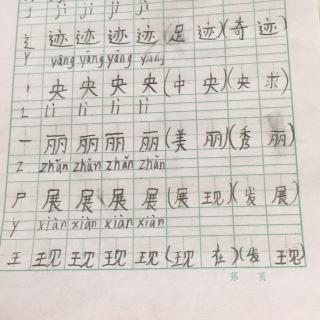 jì jì jì jì
辶 迹 迹 迹 迹 (足 迹)(奇 迹)
y yāng yāng yāng yāng
丨 央 央 央 央 (中 央)(央 求)
l lì lì lì lì
一 丽 丽 丽 丽 (美 丽)(秀 丽)
z zhǎn zhǎn zhǎn zhǎn
尸 展 展 展 展 (展 现)(发 展)
y xiàn xiàn xiàn xiàn
王 现 现 现 现 (现 在)(发 现)
第 页